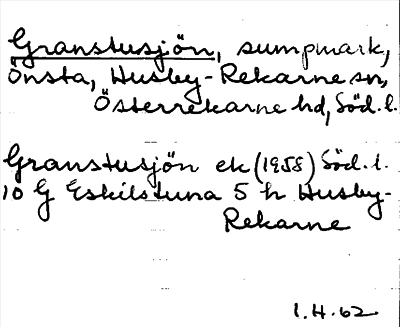 Granstusjön, sumpmark,
Önsta, Husby-Rekarne sn,
Österrekarne hd, Söd. l.
Granstusjön ek (1958) Söd. l.
10 G Eskilstuna 5 h Husby-
Rekarne
1.H.62